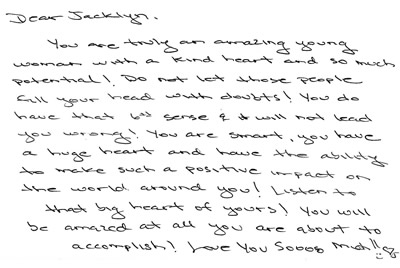 Dear Jacklyn.
You are truly an amazing young
woman with a kind heart and so much
potential! Do not let those people
fill your head with doubts! You do
have that 6th sense & it will not lead
you wrong! You are smart, you have
a huge heart and have the ability
to make such a positive impact on
the world around you! Listen to
that big heart of yours! You will
be amazed at all you are about to
accomplish! Love You Soooo Much!!